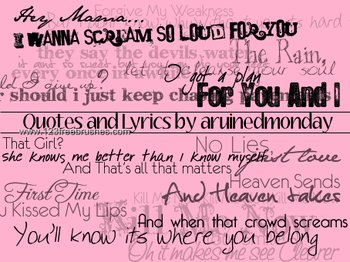 Hey Mama...
Forgive My Weakness
I WANNA SCREAM SO LOUD FOR YOU
hard
they say the devils water
The Rain,
every once in
your soul
do I give up?
Do
got a plan
r should i just keep cha
For You And I
Quotes and Lyrics by aruinedmonday
www.123freebrushes.com
That Girl?
No Lies
she knows me better than I know myself
first love
And That's all that matters
Heaven Sends
First Time
Kill M
And Heaven takes
u Kissed My Lips
Kill Me Now
And when that crowd screams
You'll know its where you belong
Oh it makes me see Clearer